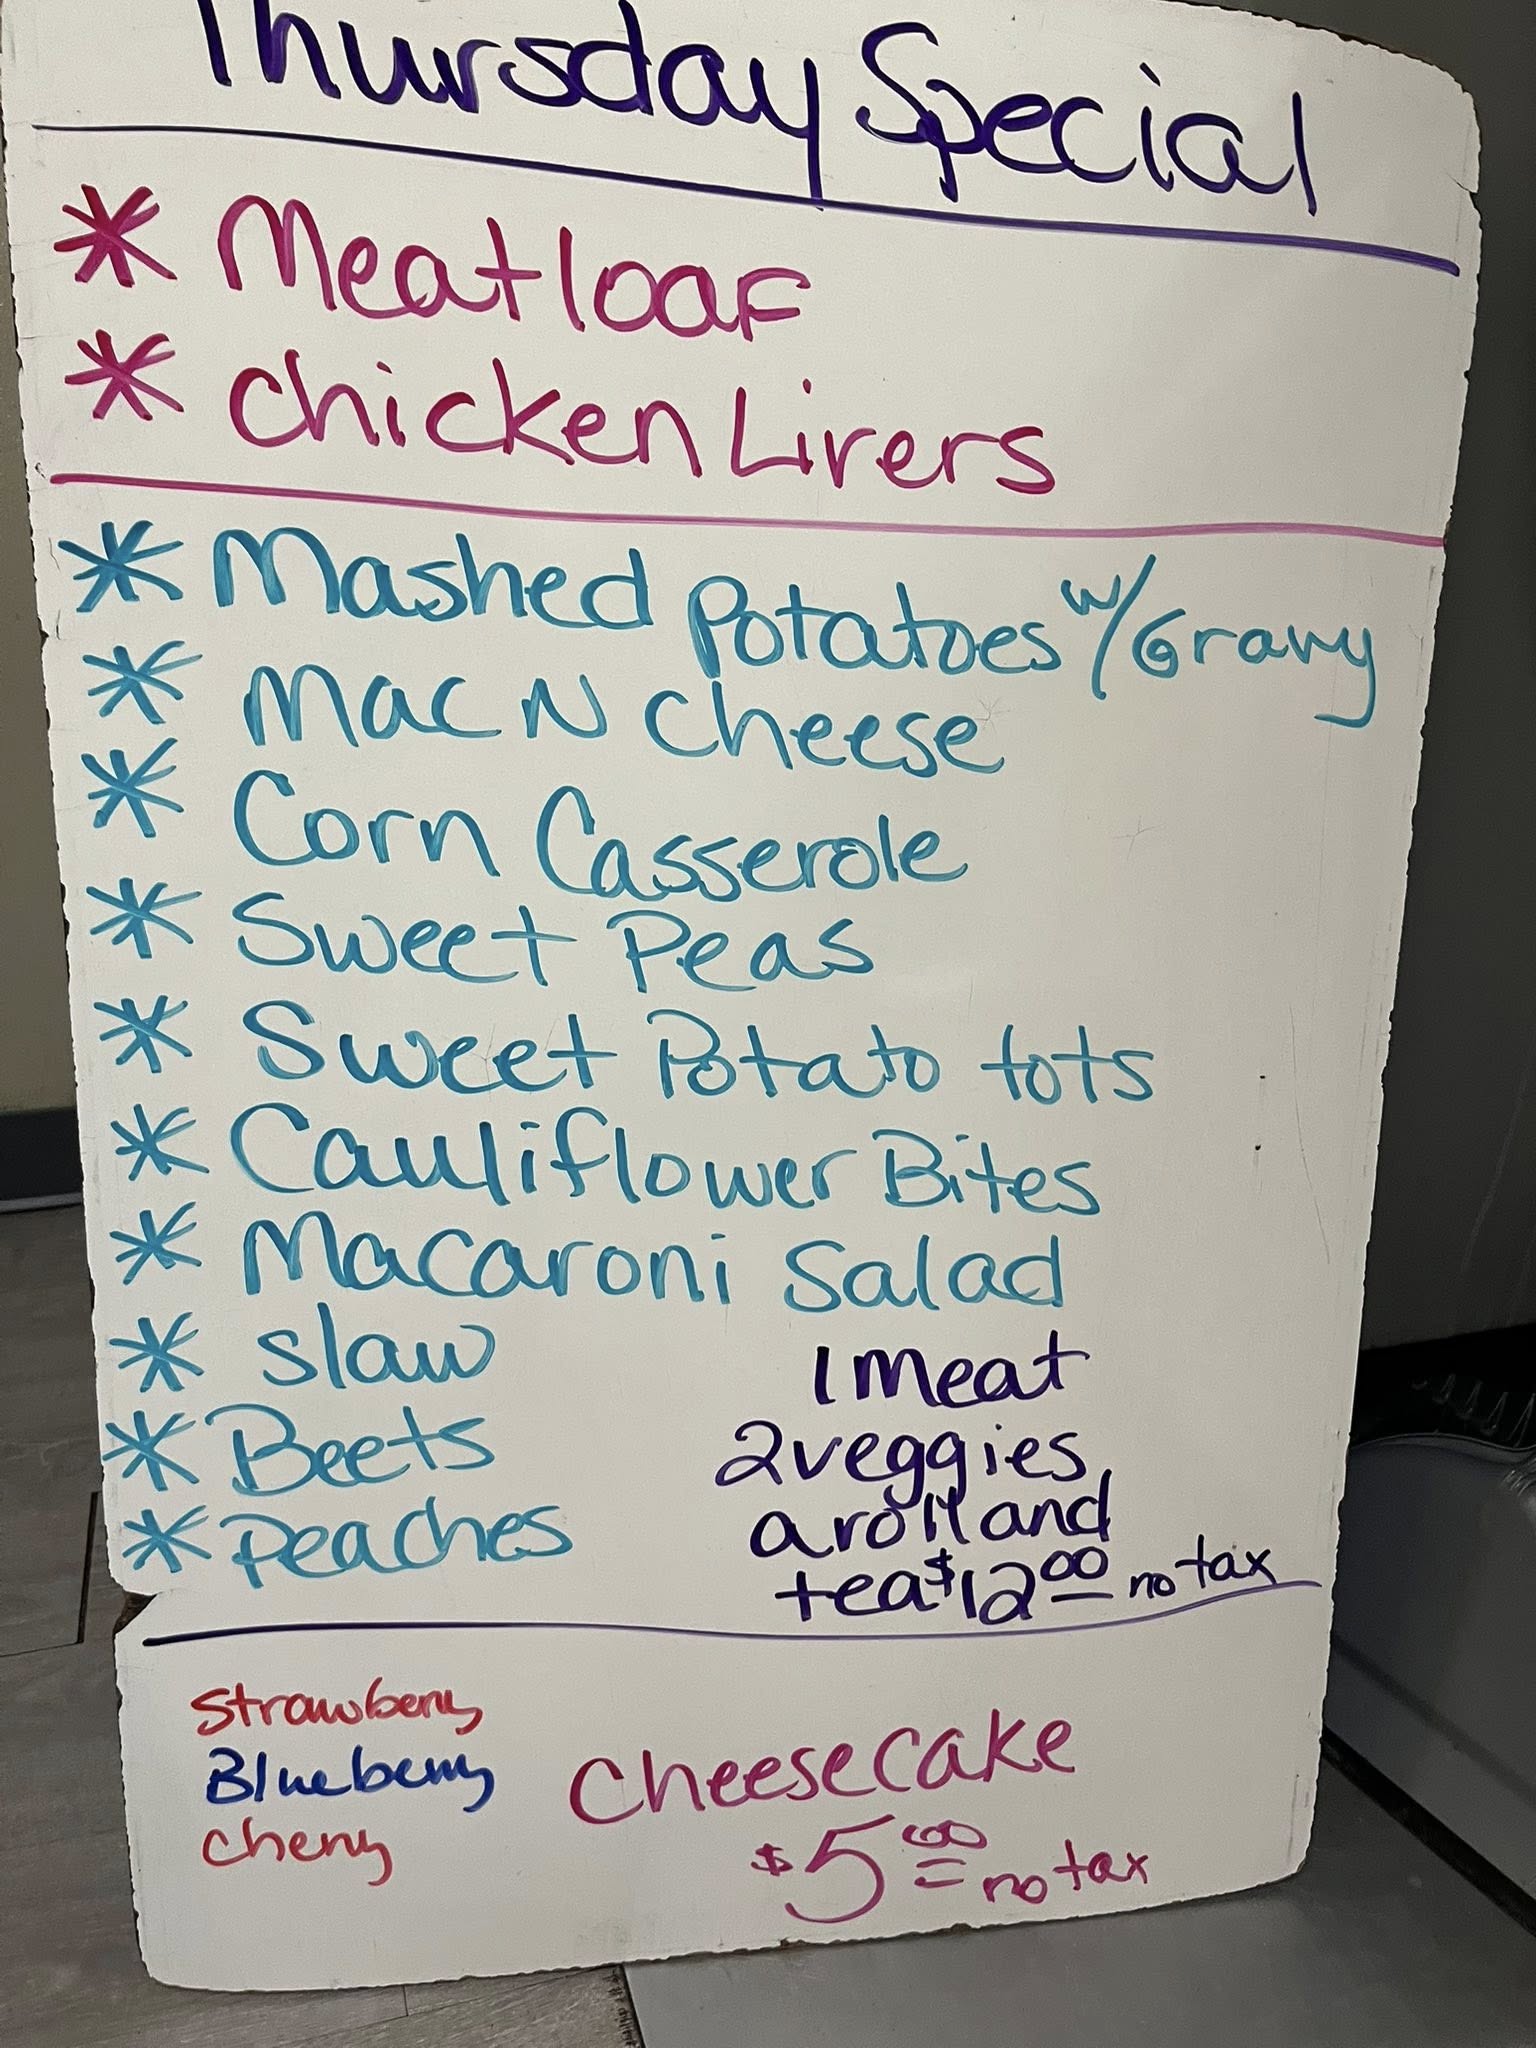 Thursday Special
* Meatloaf
* Chicken Livers
* Mashed Potatoes w/Gravy
* Mac N Cheese
* Corn Casserole
* Sweet Peas
* Sweet Potato tots
* Cauliflower Bites
* Macaroni Salad
* Slaw
* Beets
* Peaches
1 meat
2 veggies
a roll and
tea $12.00 no tax
Strawberry
Blueberry
Cherry
Cheesecake
$5.00 no tax